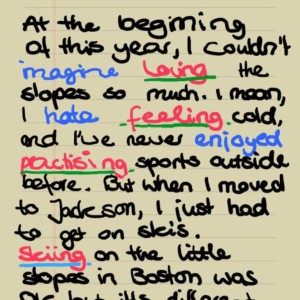 At the begining
of this year, I couldn't
imagine loving the
slopes so much. I mean,
I hate feeling cold,
and I've never enjoyed
practising sports outside
before. But when I moved
to Jackson, I just had
to get on skis.
Skiing on the little
slopes in Boston was
but it's different